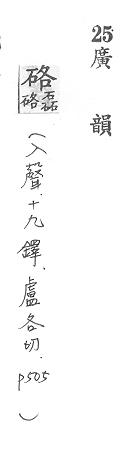 25廣韻
硌
硌磊
(入聲.十九鐸.盧各切.p505)